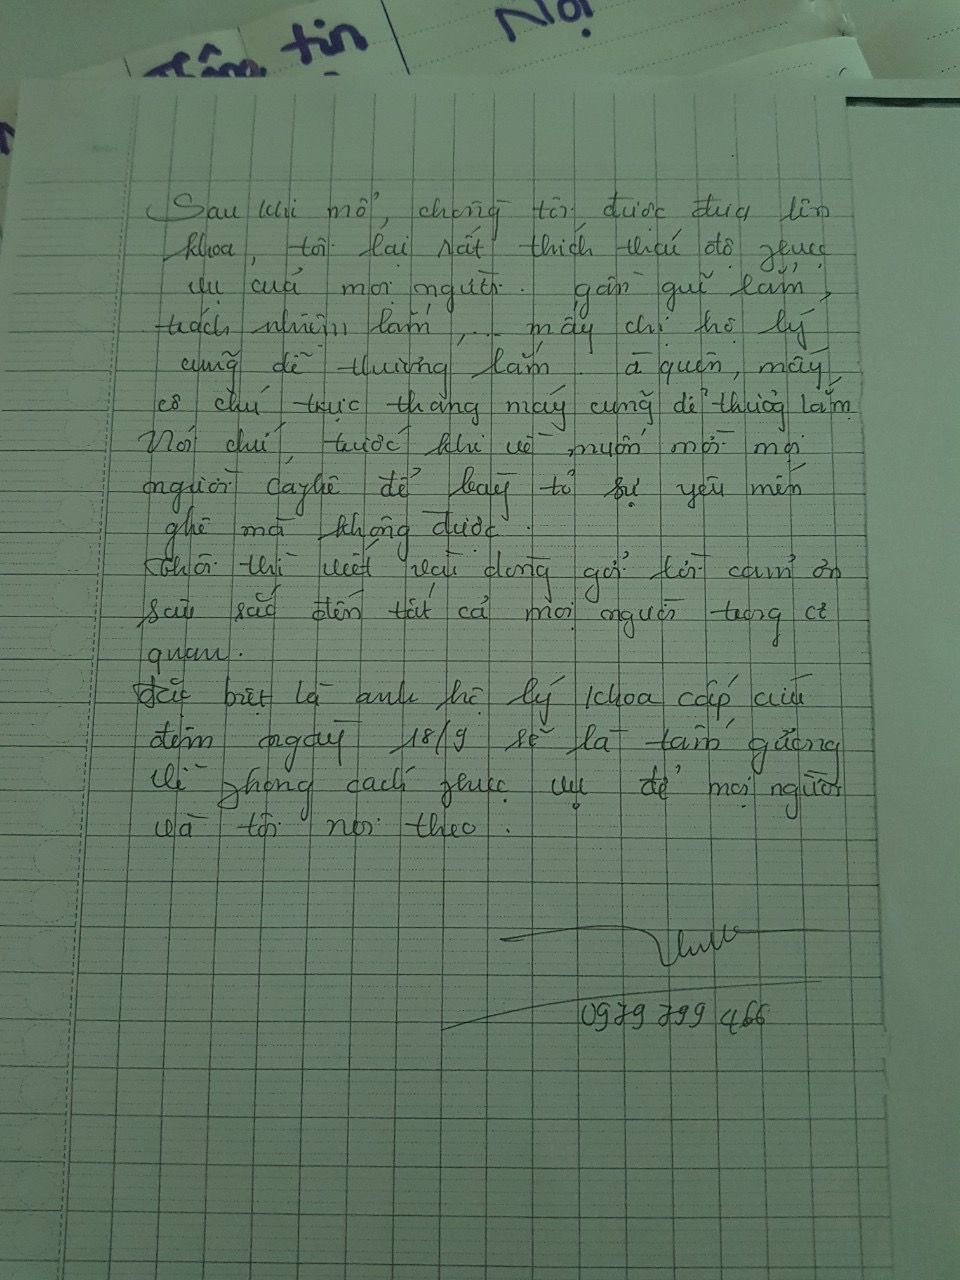 thông tin
Nội
Sau khi mổ, chồng tôi được đưa lên
khoa, tôi lại rất thích thái độ phục
vụ của mọi người. gần guĩ lắm,
trách nhiệm lắm, ... mấy chị hộ lý
cũng dễ thương lắm. à quên, mấy
cô chú trực thang máy cũng dễ thương lắm
Nói chứ, trước khi về muốn mời mọi
người càphê để bày tỏ sự yêu mến
ghê mà không được.
Thôi thì viết vài dòng gởi lời cảm ơn
sâu sắc đến tất cả mọi người trong cơ
quan.
Đặc biệt là anh hộ lý khoa cấp cứu
đêm ngày 18/9 sẽ là tấm gương
về phong cách phục vụ để mọi người
và tôi noi theo.
0979 799 466